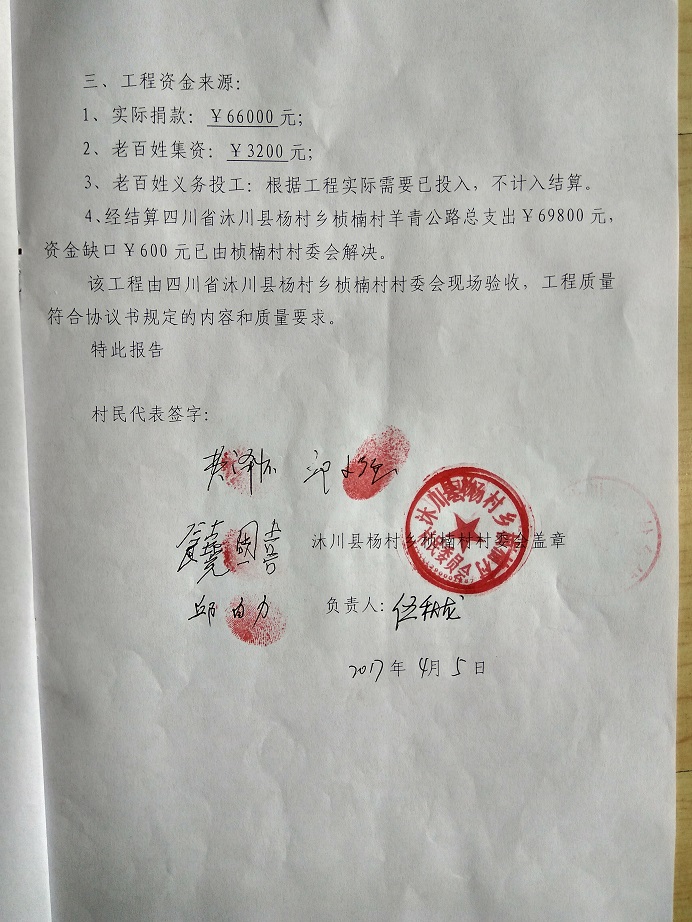 三、工程资金来源：
1、实际捐款：￥66000元；
2、老百姓集资：￥3200元；
3、老百姓义务投工：根据工程实际需要已投入，不计入结算。
4、经结算四川省沐川县杨村乡桢楠村羊青公路总支出￥69800元，
资金缺口￥600元已由桢楠村村委会解决。
该工程由四川省沐川县杨村乡桢楠村村委会现场验收，工程质量
符合协议书规定的内容和质量要求。
特此报告
村民代表签字：
沐川县杨村乡桢楠村村委会盖章
负责人：
2017年4月5日